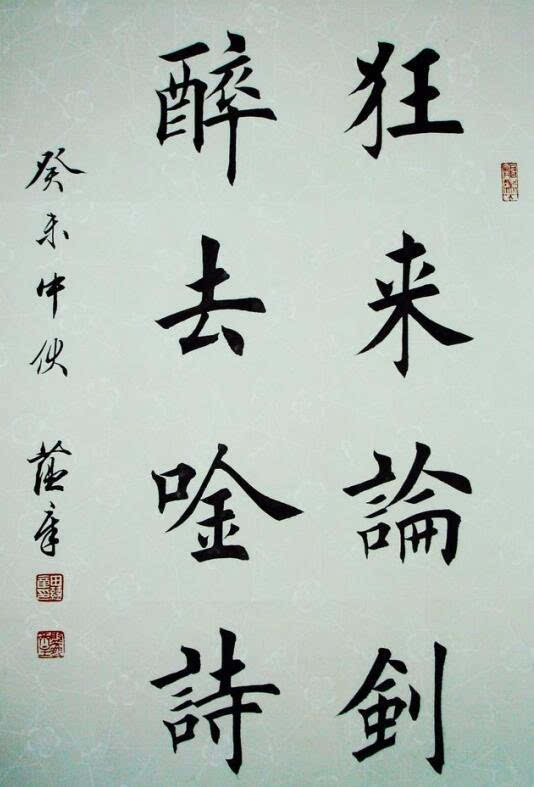 狂来論劍
醉去唫詩
癸未中伏 蘊章